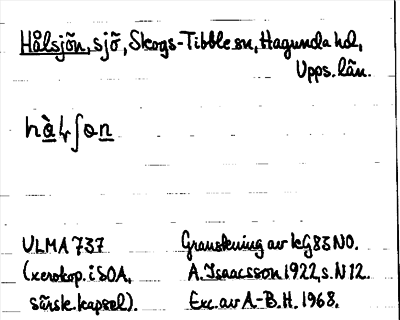 Hålsjön, sjö, Skogs-Tibble sn, Hagunda hd,
Upps. län.
hàlʃən
ULMA 737
(xerokop. i SOA,
särsk. kapsel).
Granskning av kG83NO.
A. Isaacsson 1922, s. N12.
Exc. av A-B. H. 1968.